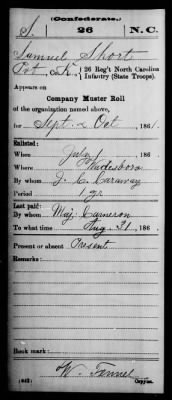 (Confederate.)
S. 26 N.C.
Samuel Short
Pvt, Co. K, 26 Reg't North Carolina
Infantry (State Troops).
Appears on
Company Muster Roll
of the organization named above,
for Sept & Oct, 1861.
Enlisted:
When July 1, 186
Where Wadesboro
By whom J. C. Caraway
Period 1 yr
Last paid:
By whom Maj. Cameron
To what time Aug. 31, 186
Present or absent Present
Remarks:
Book mark:
(642) W. Copyist.